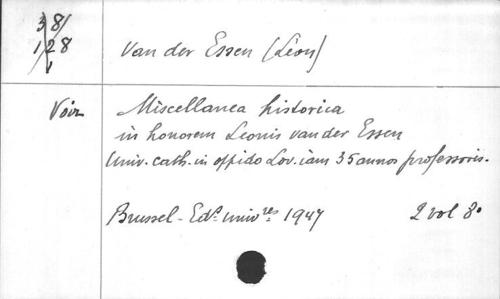 38/
128
1
Van der Essen (Léon)
Voir Miscellanea historica
in honorem Leonis van der Essen
Univ. cath. in oppido Lov. iam 35 annos professoris.
Brussel - Edᵗˢ univʳᵉˢ 1947 2 vol 8°